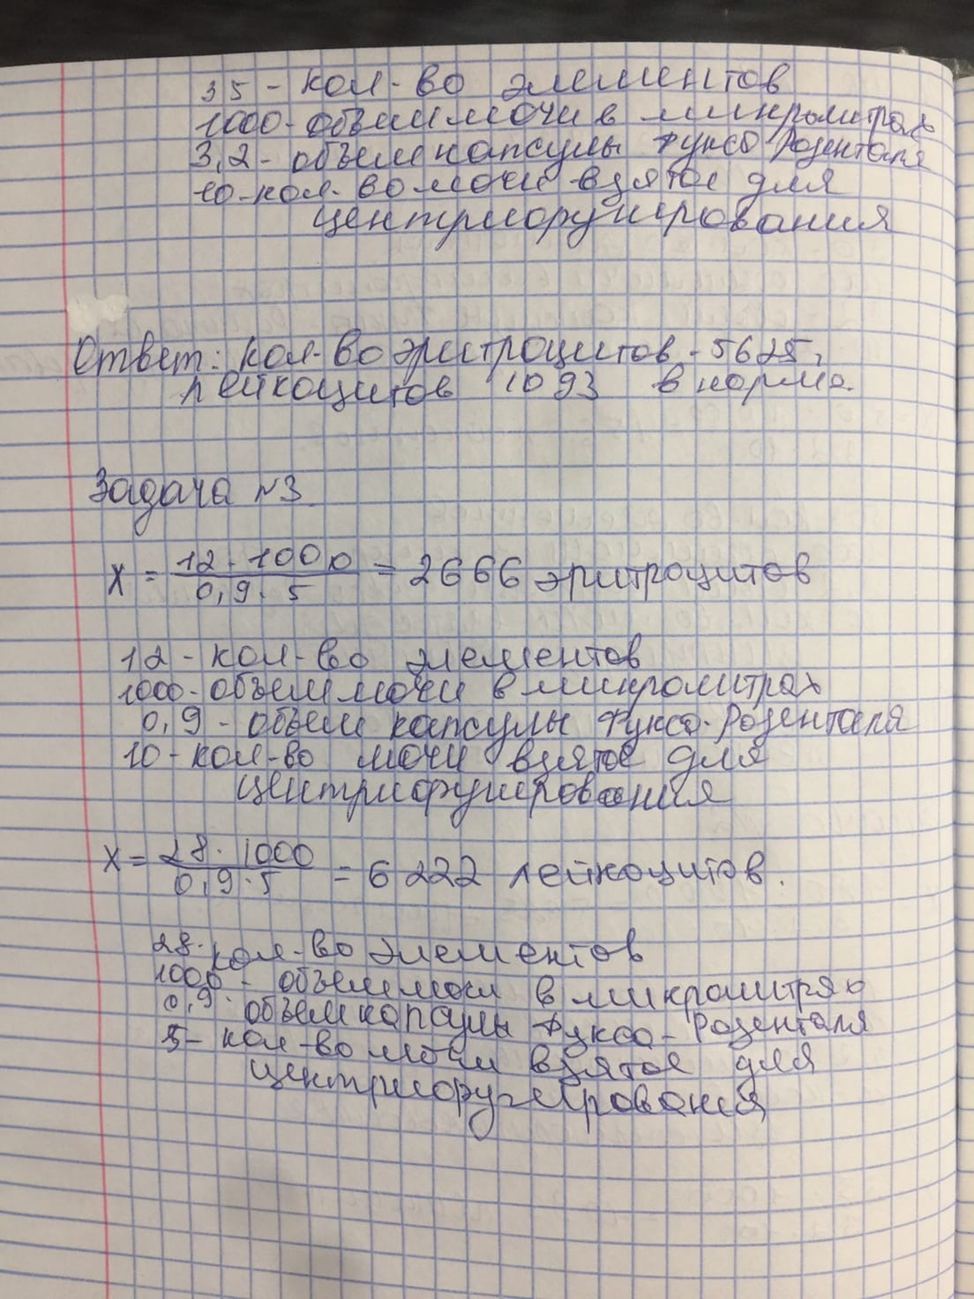 35 - кол-во элементов
1000 - объем мочи в микролитрах
3,2 - объем капсулы Фукса-Розенталя
10 - кол-во мочи взятое для
центрифугирования
Ответ: кол-во эритроцитов - 5625,
лейкоцитов 1093 в норме.
Задача №3
X = 12 · 1000 / 0,9 · 5 = 2666 эритроцитов
12 - кол-во элементов
1000 - объем мочи в микролитрах
0,9 - объем капсулы Фукса-Розенталя
10 - кол-во мочи взятое для
центрифугирования
X = 28 · 1000 / 0,9 · 5 = 6222 лейкоцитов.
28 - кол-во элементов
1000 - объем мочи в микролитрах
0,9 - объем капсулы Фукса-Розенталя
5 - кол-во мочи взятое для
центрифугирования